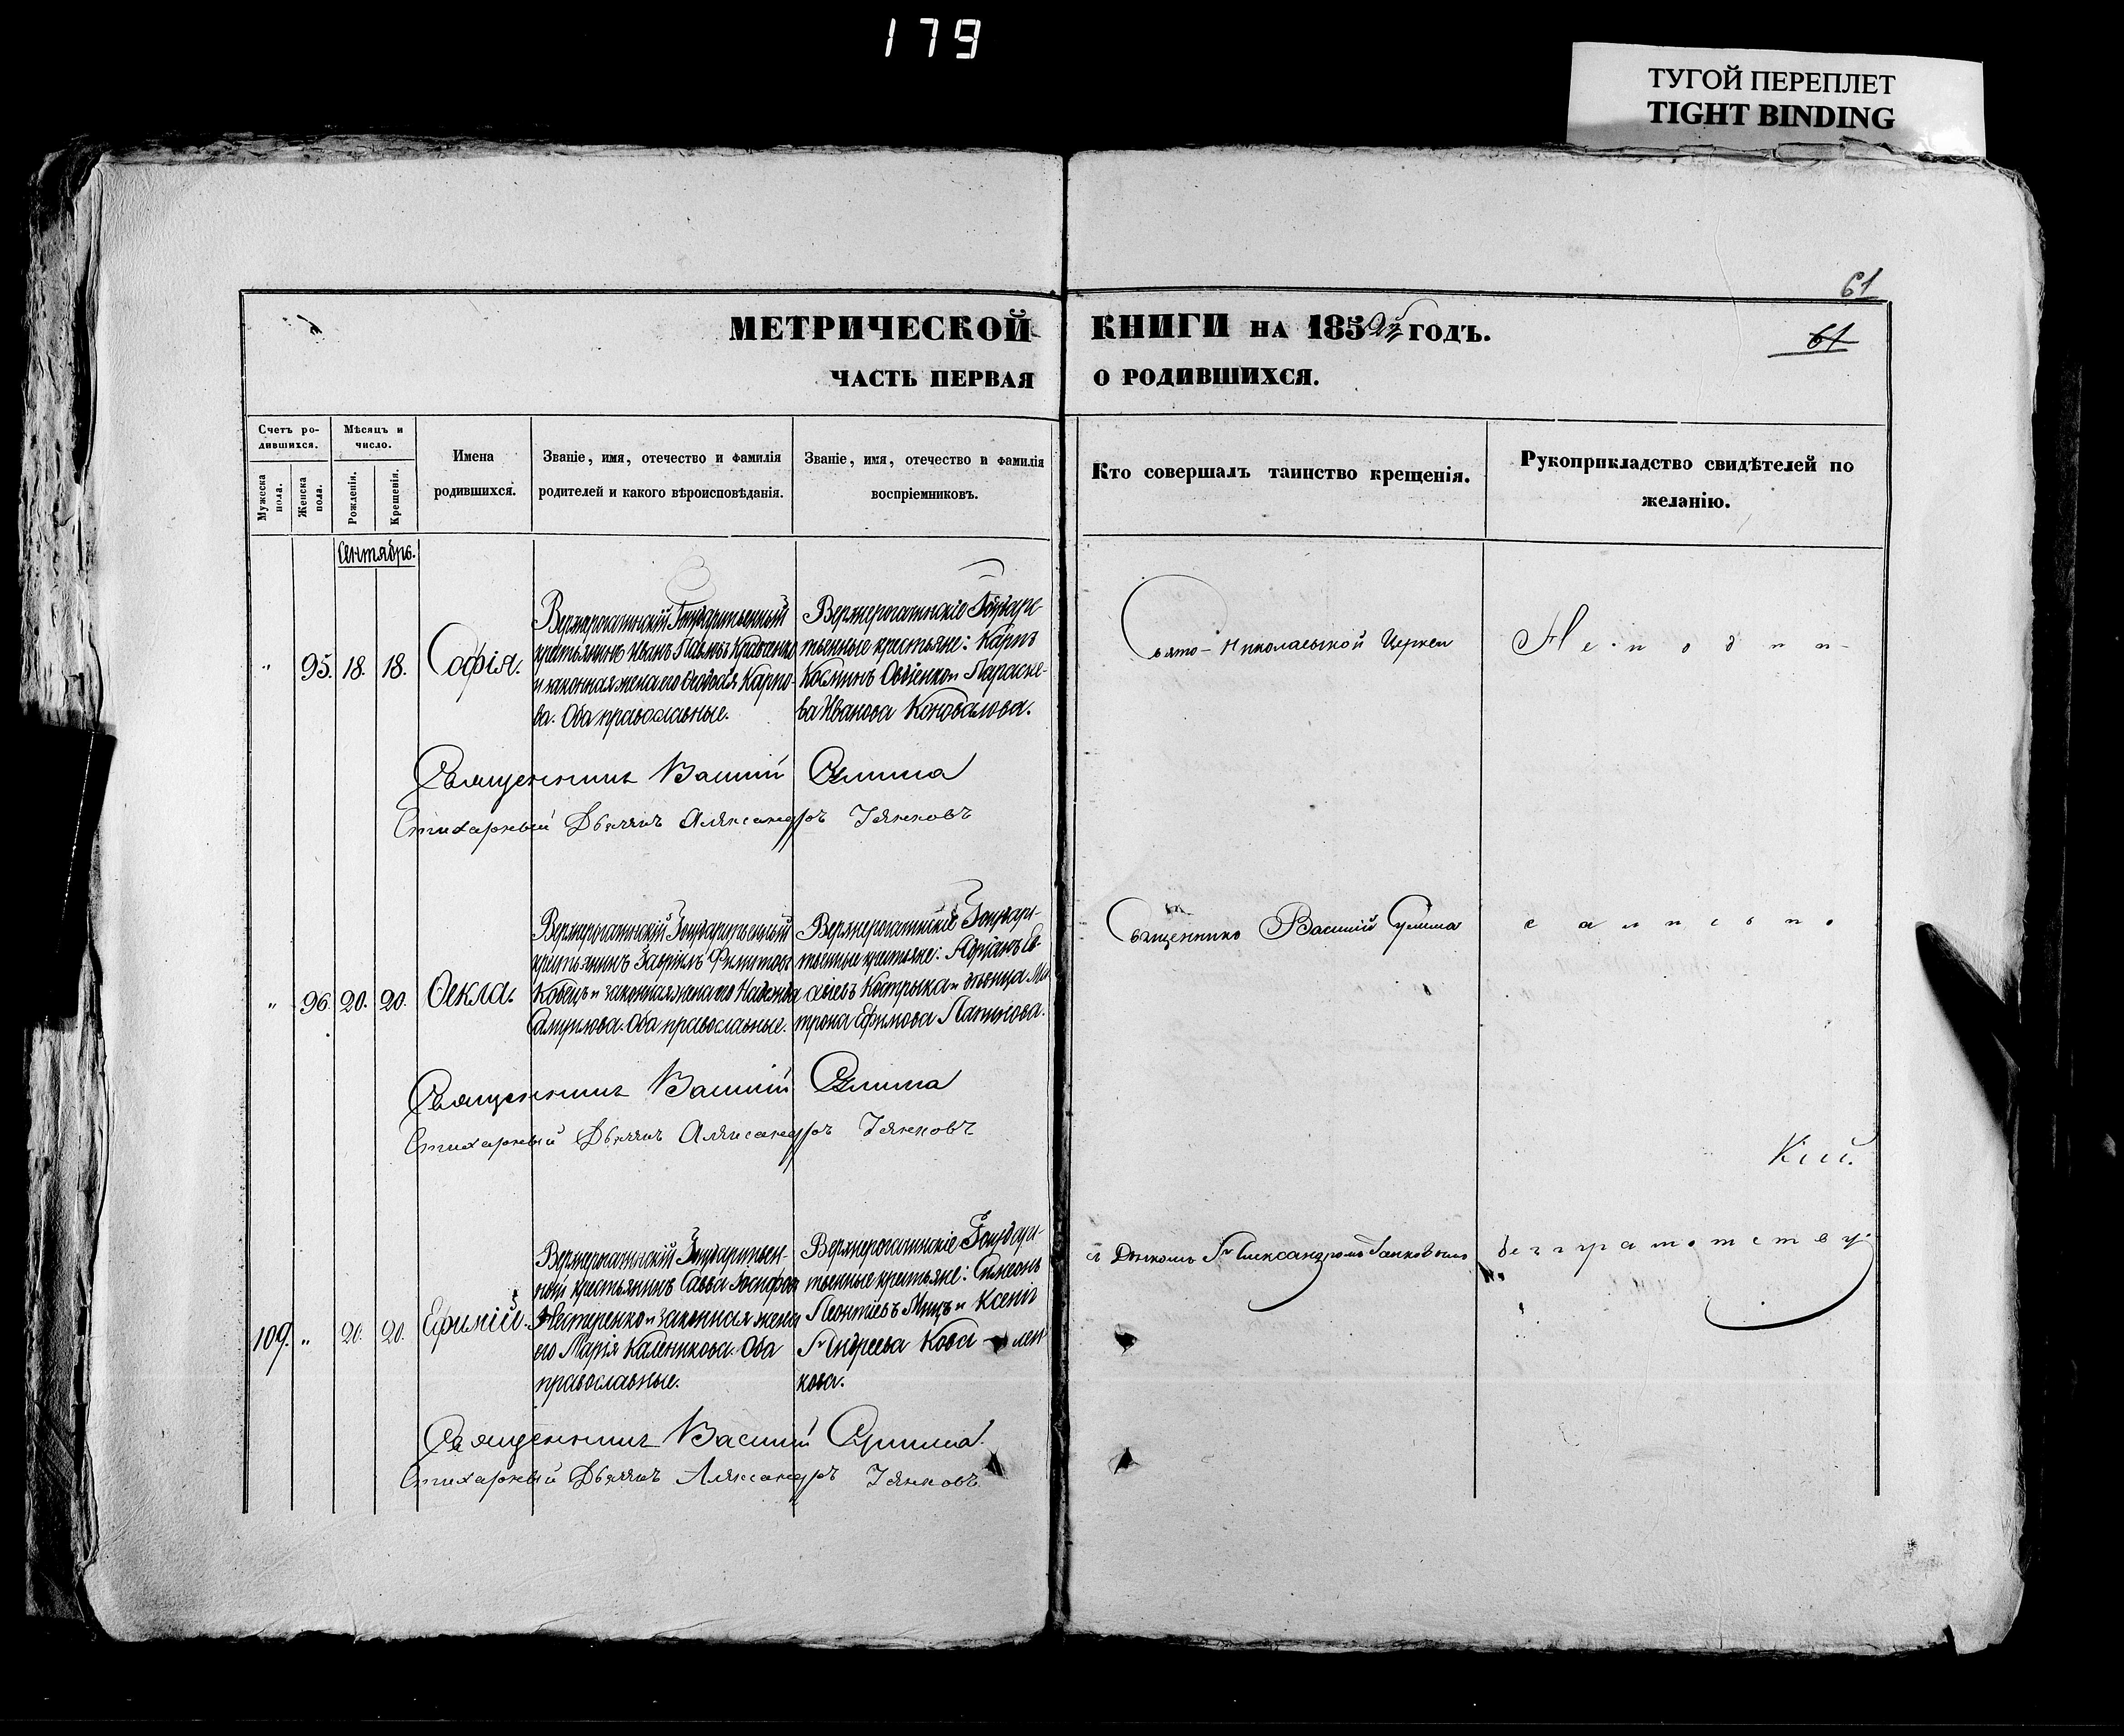 179
ТУГОЙ ПЕРЕПЛЕТ
TIGHT BINDING
61
МЕТРИЧЕСКОЙ КНИГИ НА 1852й ГОДЪ.
61
ЧАСТЬ ПЕРВАЯ О РОДИВШИХСЯ.
Счетъ ро-
дившихся.
Мужеска пола.
Женска пола.
Мѣсяцъ и
число.
Рожденія.
Крещенія.
Имена
родившихся.
Званіе, имя, отечество и фамилія
родителей и какого вѣроисповѣданія.
Званіе, имя, отечество и фамилія
воспріемниковъ.
Кто совершалъ таинство крещенія.
Рукоприкладство свидѣтелей по
желанію.
Сентябрь.
„ 95. 18. 18. Софія.
Верхнерогачинскій Государственный
крестьянинъ Иванъ Павловъ Кравченко
и законная жена его Ѳеодосія Карпо-
ва. Оба православные.
Верхнерогачинскіе Государс-
твенные крестьяне: Карпъ
Косминъ Овдіенко и Параске-
ва Иванова Коновалова.
Свято-Николаевской Церкви
Не подпи-
Священникъ Василій
Стихарный Дьячекъ Александръ
„ 96 20. 20. Ѳекла.
Верхнерогачинскій Государственный
крестьянинъ Гавріилъ Филиповъ
Кобецъ и законная жена его Надежда
Самуилова. Оба православные.
Верхнерогачинскіе Государс-
твенные крестьяне: Адріанъ Са-
Кострыка и дѣвица Ма-
трона Ефимова
Священникъ Василій
сались по
Священникъ Василій
Стихарный Дьячекъ Александръ
109. „ 20. 20. Ефимій.
Верхнерогачинскій Государствен-
ный крестьянинъ Савва Іосифовъ
Нестеренко и законная жена
его Марія Каленикова. Оба
православные.
Верхнерогачинскіе Государс-
твенные крестьяне: Симеонъ
Леонтіевъ Мицъ и Ксенія
Андреева Кова лен
кова.
съ Дьячкомъ Александромъ
безграмотству.
Священникъ Василій
Стихарный Дьячекъ Александръ